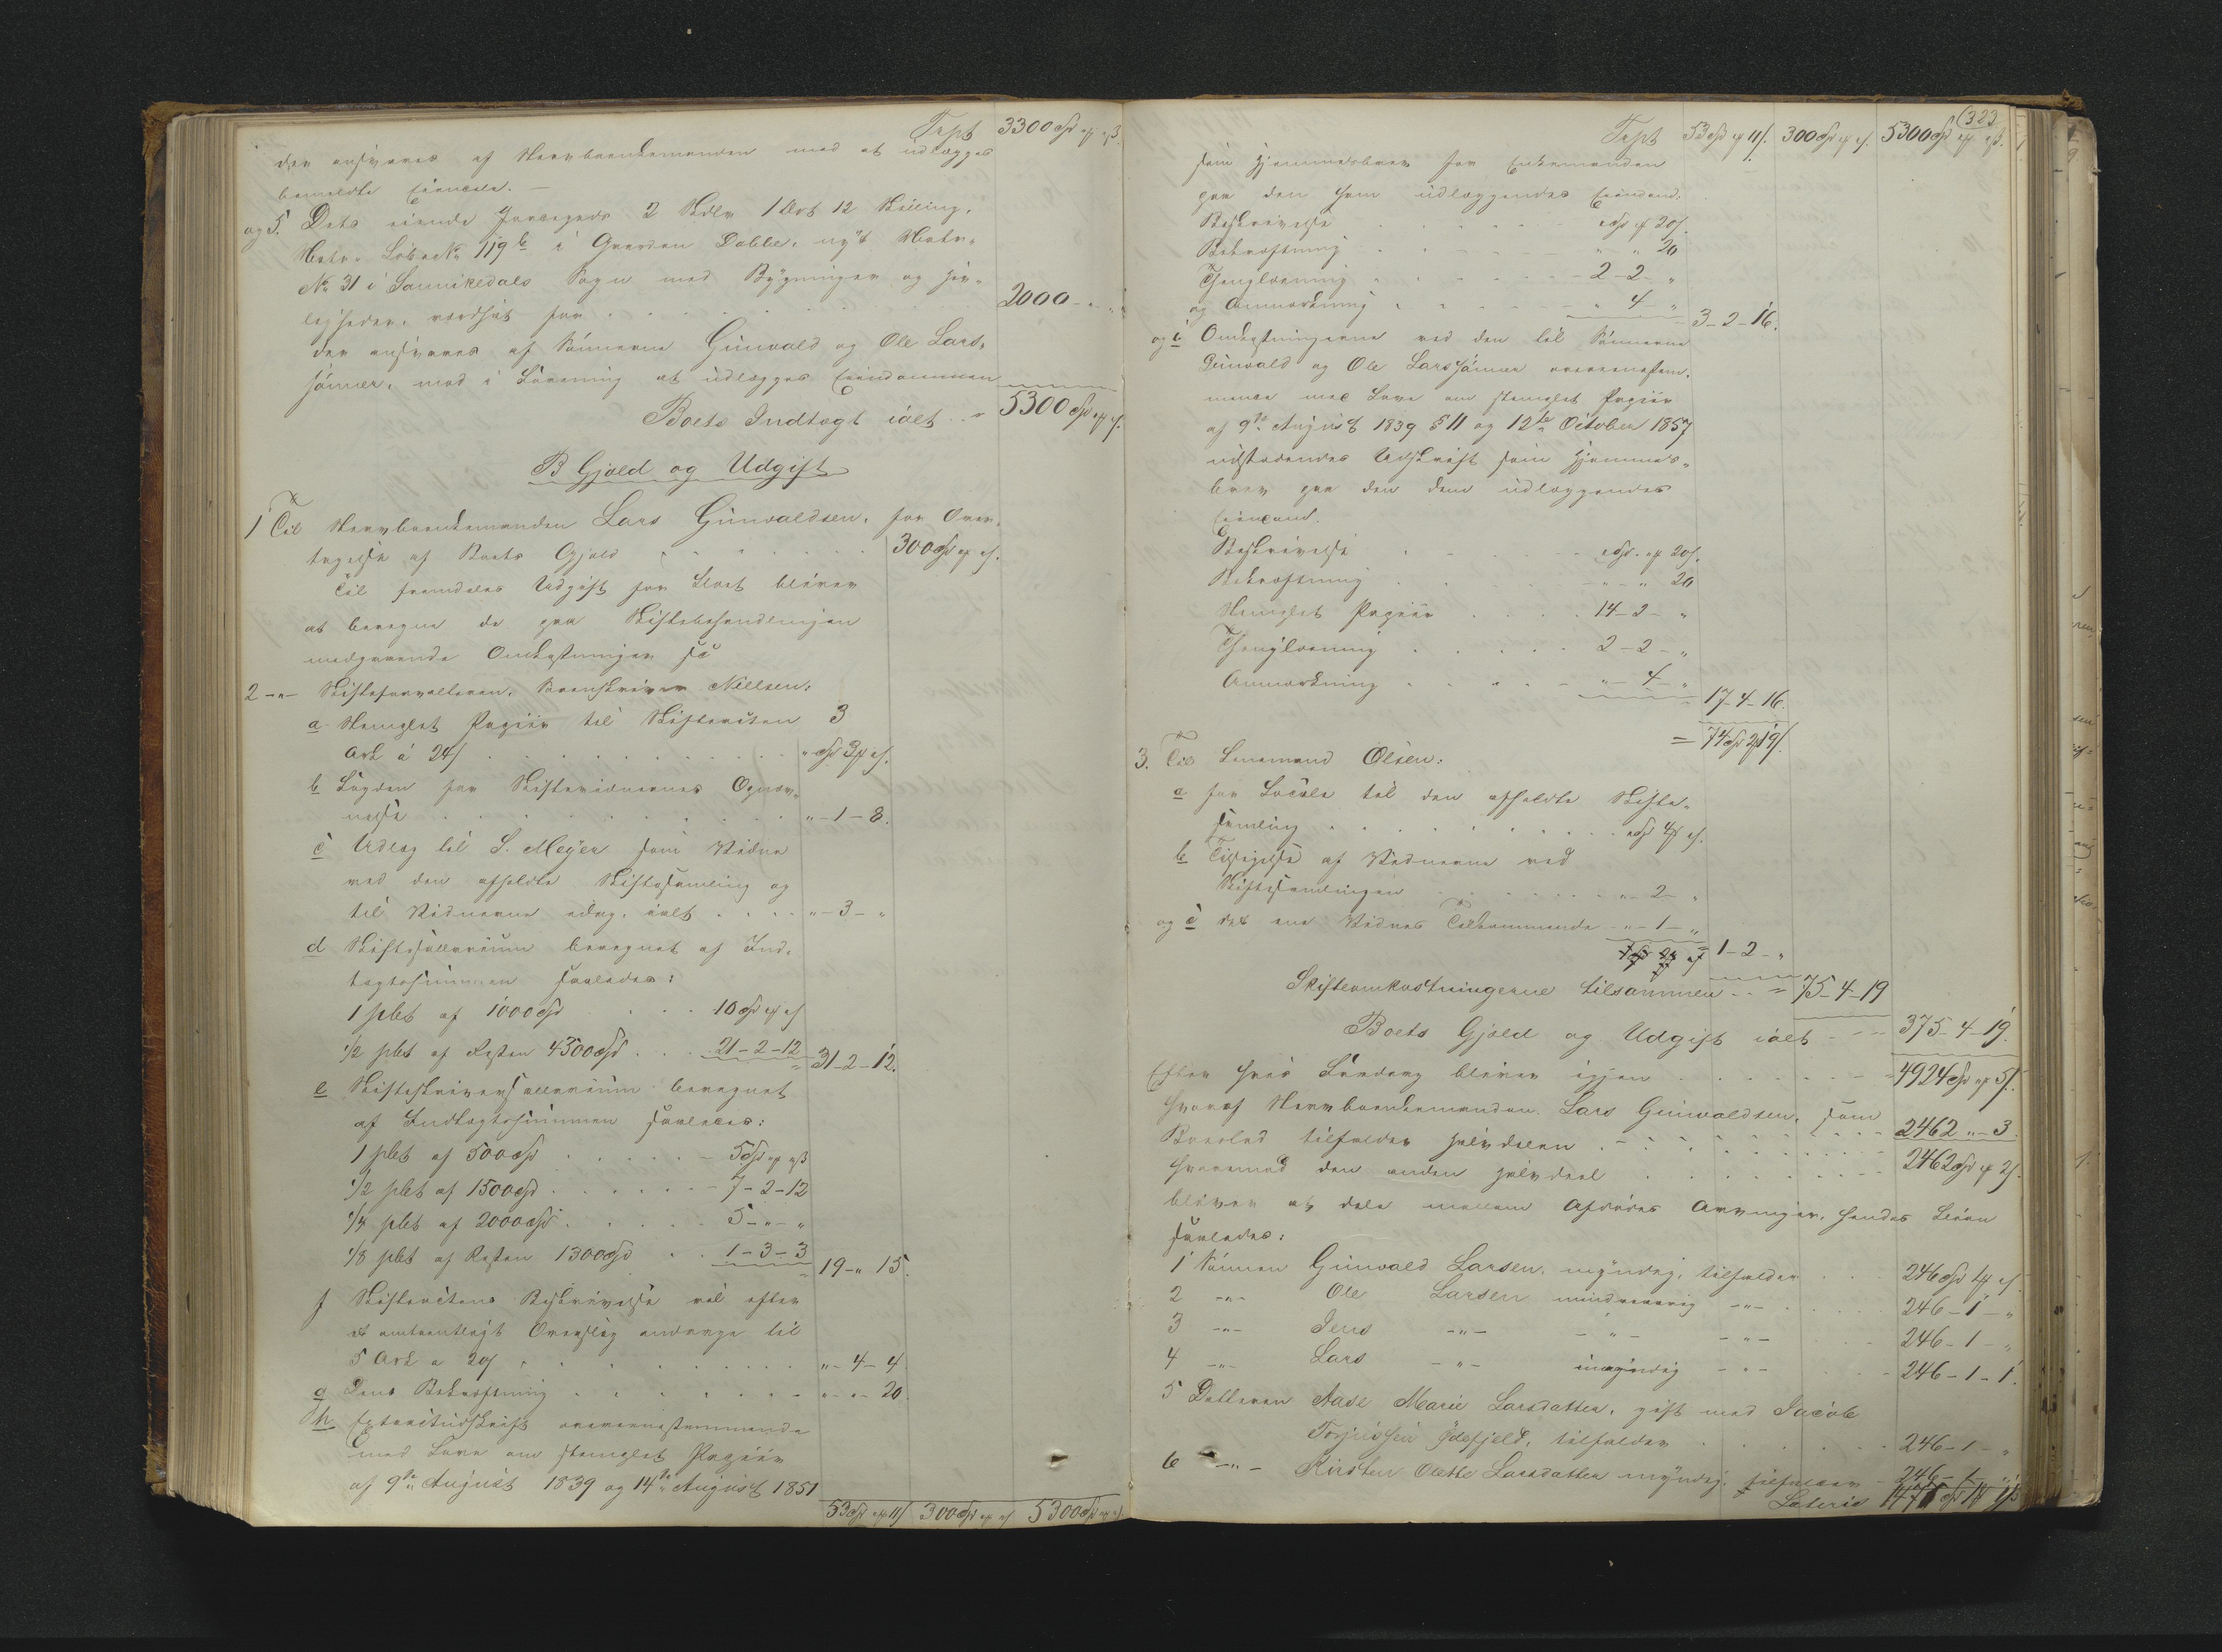 Trpt 3300 Spd
der ansvares af Stervboenkemanden mod at udlægges
bemeldte Eiendele. —
og 5. Dets eiende Jordegods 2 Skdlr 1 Ort 12 Skilling,
Matr. Løbe No 119 b i Gaarden Dobbe, nyt Matr.
No 31 i Sannikedals Sogn med Bygninger og Her-
ligheder, værdsat for . . . 2000 - " - "
der ansvares af Sønnerne Gunvald og Ole Lars-
sønner, mod i Løsening at udlægges Eiendommen
Boets Indtægt ialt .. = 5300 Spd
B Gjæld og Udgift
1 Til Stervboenkemanden Lars Gunvaldsen, for Over-
tagelse af Boets Gjæld . . . 300 Spd
Til fremdeles Udgift for Boet bliver
at beregne de paa Skiftebehandlingen
medgaaende Omkostninger som
2 -"- Skifteforvalteren, Sorenskriver Nielsen:
a Stemplet Papiir til Skifteacten 3
Ark á 24 s . . . " Spd 3 " s.
b Lugden for Skiftevidnernes Opnæv-
nelse . . . " - 1 - 8.
c Udlæg til S. Meyer som Vidne
ved den afholdte Skiftesamling og
til Vidnerne idag, ialt . . . " - 3 - "
d Skiftesallarium beregnet af Ind-
tægtssummen saaledes:
1 pCt af 1000 Spd . . . 10 Spd
1/2 pCt af Resten 4300 Spd . . . 21 - 2 - 12 = 31 - 2 - 12.
e Skifteskriversallarium beregnet
af Indtægtssummen saaledes:
1 pCt af 500 Spd . . . 5 Spd
1/2 pCt af 1500 Spd . . . 7 - 2 - 12
1/4 pCt af 2000 Spd . . . 5 - " - "
1/8 pCt af Resten 1300 Spd . . 1 - 3 - 3 = 19 - " 15.
f Skifteactens Beskrivelse vil efter
et omtrentligt Overslag andrage til
5 Ark a 20 s . . . " - 4 - 4
g Dens Bekræftning . . . " - " - 20.
h Extractudskrift overeensstemmende
med Lovn om stemplet Papiir
af 9de August 1839 og 14de August 1851
53 Spd " 11 s 300 Spd 5300 Spd
323
Trpt 53 Spd " 11 s. 300 Spd 5300 Spd
som Hjemmelsbrev for Enkemanden
paa den ham udlæggendes Eiendom.
Beskrivelse . . . Spd " 20 s.
Bekræftning . . . " " 20
Thinglæsning . . . 2 - 2 - "
og Anmærkning . . . " 4 - " 3 - 2 - 16.
og i Omkostningerne ved den til Sønnerne
Gunvald og Ole Larssønner overeensstem-
mende med Lovn om stemplet Papiir
af 9de August 1839 § 11 og 12te October 1857
udstedendes Udskrift som Hjemmels-
brev paa den dem udlæggendes
Eiendom.
Beskrivelse . . . Spd " 20 s.
Bekræftning . . . " - " 20
Stemplet Papiir . . . 14 - 2 - "
Thinglæsning . . . 2 - 2 - "
Anmærkning . . . " - 4 - " 17 - 4 - 16.
= 74 Spd 2 " 19 s.
3. Til Lensmand Olsen:
a for Locale til den afholdte Skifte-
samling . . . Spd 4 " s.
b Tilsigelse af Vidnerne ved
Skiftesamlingen . . . " - 2 - "
og c det ene Vidnes Tilkommende - " - 1 - "
= 1 - 2 - "
Skifteomkostningerne tilsammen .. = 75 - 4 - 19
Boets Gjæld og Udgift ialt - - - 375 - 4 - 19.
Efter hvis Fradrag bliver igjen . . . 4924 Spd " 5 s.
hvoraf Stervboenkemanden Lars Gunvaldsen, som
Boeslod tilfalder Halvdelen . . . 2462 " - 3.
hvorimod den anden Halvdeel . . . 2462 Spd " 2 s.
bliver at dele mellem Afdødes Arvinger, hendes Børn
saaledes:
1 Sønnen Gunvald Larsen, myndig, tilfalder . . . 246 Spd 1 " s.
2 -"- Ole Larsen mindreaarig -"- . . . 246 - 1 - "
3 -"- Jens -"- -"- -"- . . . 246 - 1 - "
4 -"- Lars -"- umyndig -"- . . . 246 - 1 - 1.
5 Datteren Aase Marie Larsdatter, gift med Jacob
Torjussen Ødefjeld, tilfalder . . . 246 - 1 - "
6 -"- Kirsten Olette Larsdatter myndig, tilfalder - 246 - 1 - "
Lateris 1477 Spd 1 " 1 s